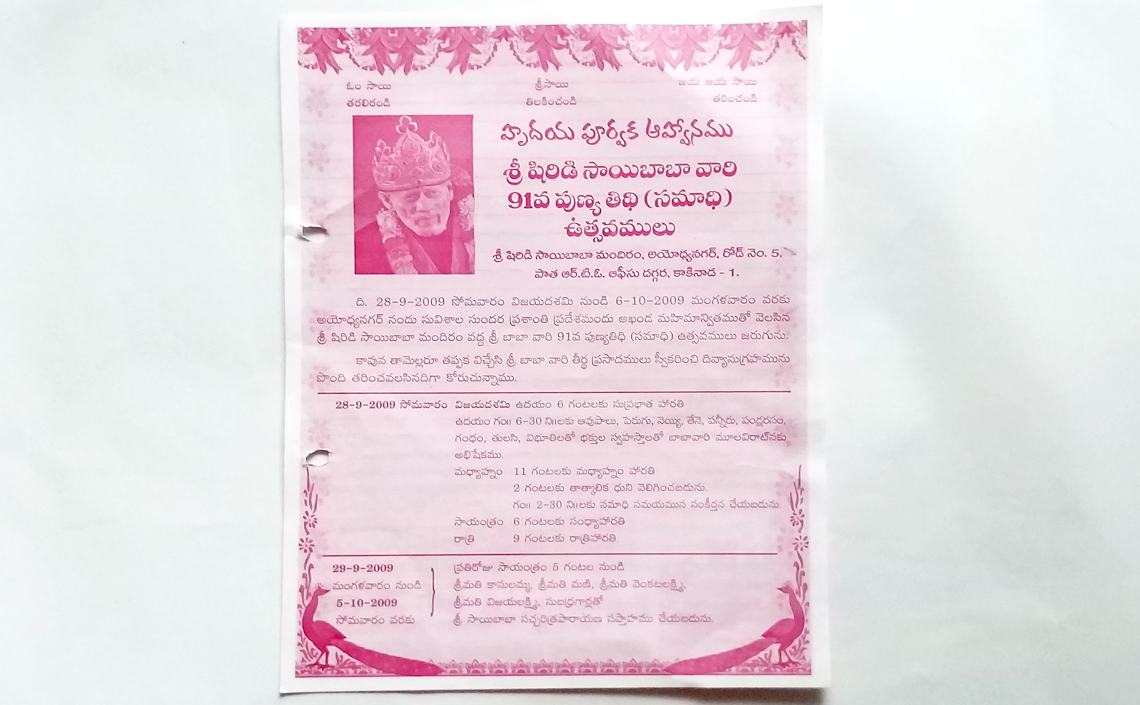 ఓం సాయి శ్రీసాయి జయ జయ సాయి
తరలిరండి తిలకించండి తరించండి
హృదయ పూర్వక ఆహ్వానము
శ్రీ షిరిడి సాయిబాబా వారి
91వ పుణ్య తిథి (సమాధి)
ఉత్సవములు
శ్రీ షిరిడి సాయిబాబా మందిరం, అయోధ్యనగర్, రోడ్ నెం. 5.
పాత ఆర్.టి.ఓ. ఆఫీసు దగ్గర, కాకినాడ - 1.
ది. 28-9-2009 సోమవారం విజయదశమి నుండి 6-10-2009 మంగళవారం వరకు
అయోధ్యనగర్ నందు సువిశాల సుందర ప్రశాంతి ప్రదేశమందు అఖండ మహిమాన్వితముతో వెలసిన
శ్రీ షిరిడి సాయిబాబా మందిరం వద్ద శ్రీ బాబా వారి 91వ పుణ్యతిధి (సమాధి) ఉత్సవములు జరుగును.
కావున తామెల్లరూ తప్పక విచ్చేసి శ్రీ బాబా వారి తీర్థ ప్రసాదములు స్వీకరించి దివ్యానుగ్రహమును
పొంది తరించవలసినదిగా కోరుచున్నాము.
28-9-2009 సోమవారం విజయదశమి ఉదయం 6 గంటలకు సుప్రభాత హారతి
ఉదయం గం॥ 6-30 ని॥లకు ఆవుపాలు, పెరుగు, నెయ్యి, తేనె, పన్నీరు, పండ్లరసం,
గంధం, తులసి, విభూతిలతో భక్తుల స్వహస్తాలతో బాబావారి మూలవిరాట్‌నకు
అభిషేకము.
మధ్యాహ్నం 11 గంటలకు మధ్యాహ్నం హారతి
2 గంటలకు తాత్కాలిక ధుని వెలిగించబడును.
గం॥ 2-30 ని॥లకు సమాధి సమయమున సంకీర్తన చేయబడును.
సాయంత్రం 6 గంటలకు సంధ్యాహారతి
రాత్రి 9 గంటలకు రాత్రిహారతి
29-9-2009 ప్రతిరోజు సాయంత్రం 5 గంటల నుండి
మంగళవారం నుండి శ్రీమతి కాసులమ్మ, శ్రీమతి మణి, శ్రీమతి వెంకటలక్ష్మి,
5-10-2009 శ్రీమతి విజయలక్ష్మి, సుభద్రగార్లతో
సోమవారం వరకు శ్రీ సాయిబాబా సచ్చరిత్రపారాయణ సప్తాహము చేయబడును.